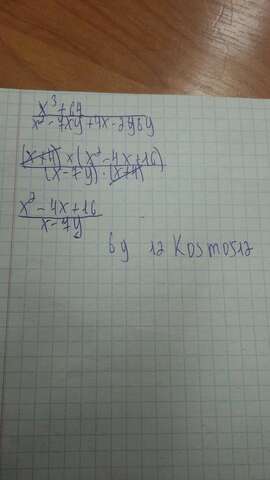 x³+64
x²-7xy+4x-28y
(x+4)×(x²-4x+16)
(x-7y)·(x+4)
x²-4x+16
x-7y
by 12 Kosmos12